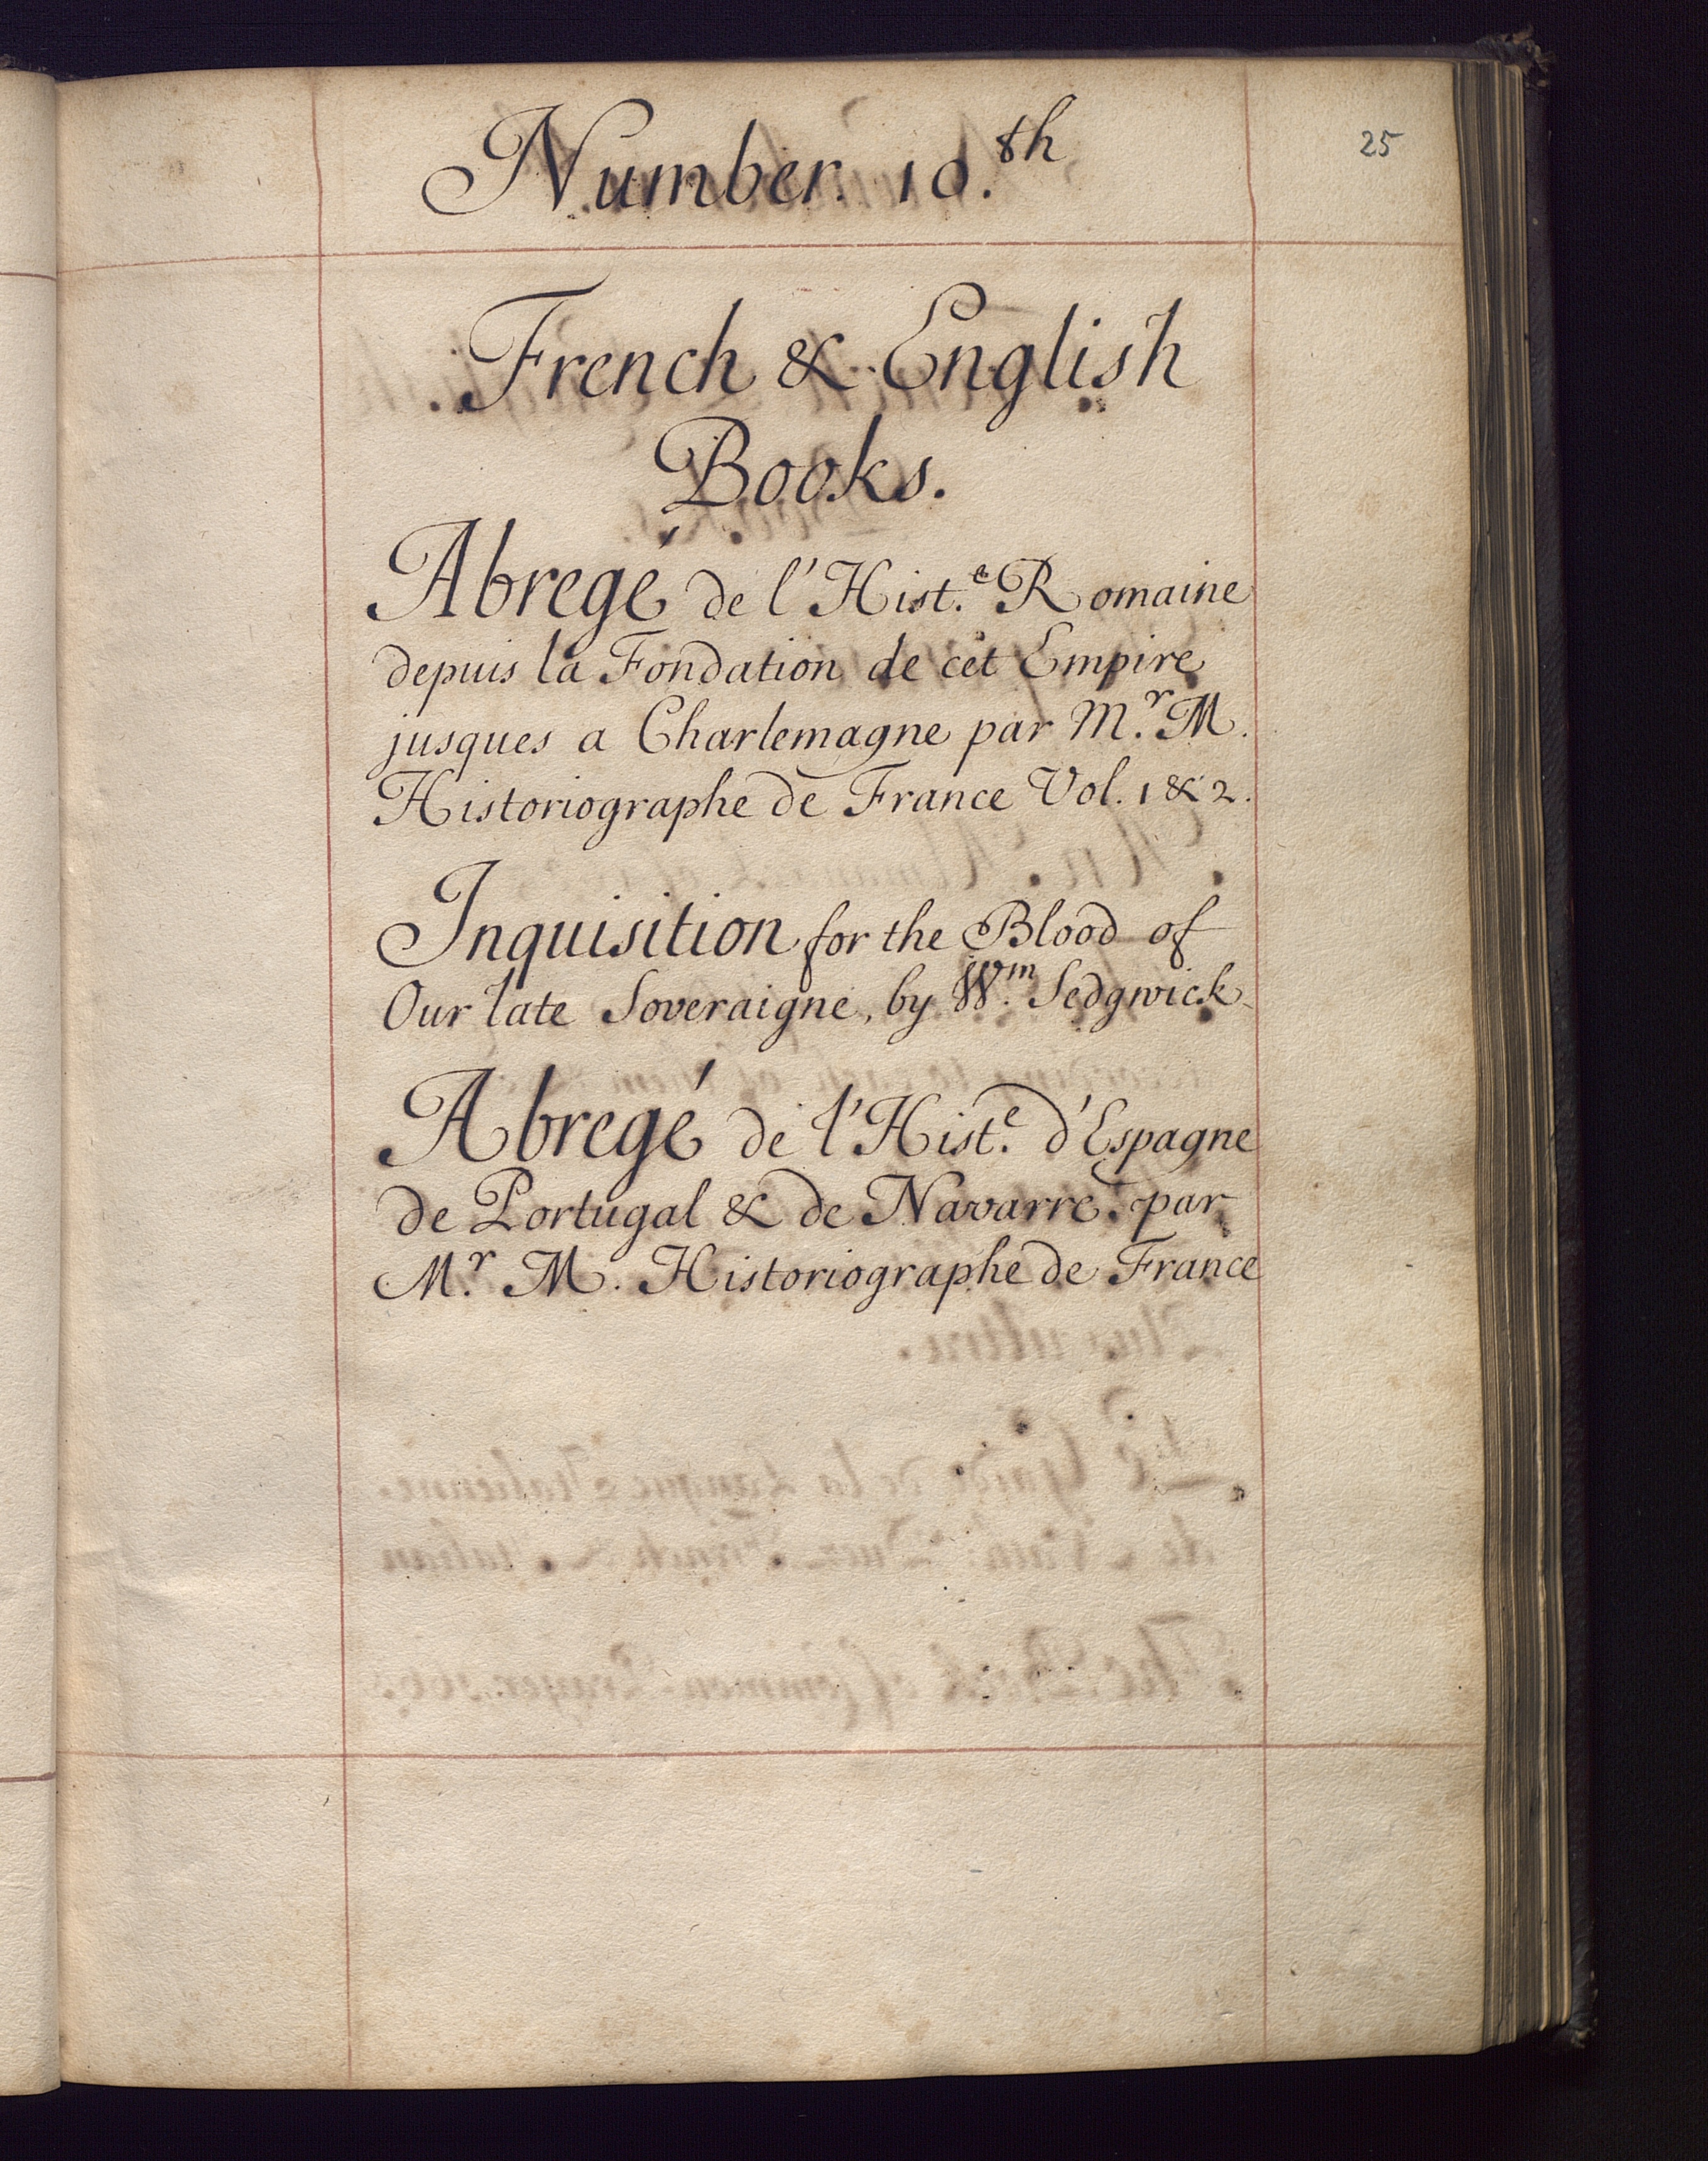 25
Number. 10.th
French & English
Books.
Abregé de l'Hist.e Romaine
depuis la Fondation de cet Empire
jusques a Charlemagne par Mr. M.
Historiographe de France Vol. 1 & 2.
Inquisition for the Blood of
Our late Soveraigne, by Wm. Sedgwick
Abregé de l'Hist.e d'Espagne
de Portugal & de Navarre. par
Mr. M. Historiographe de France